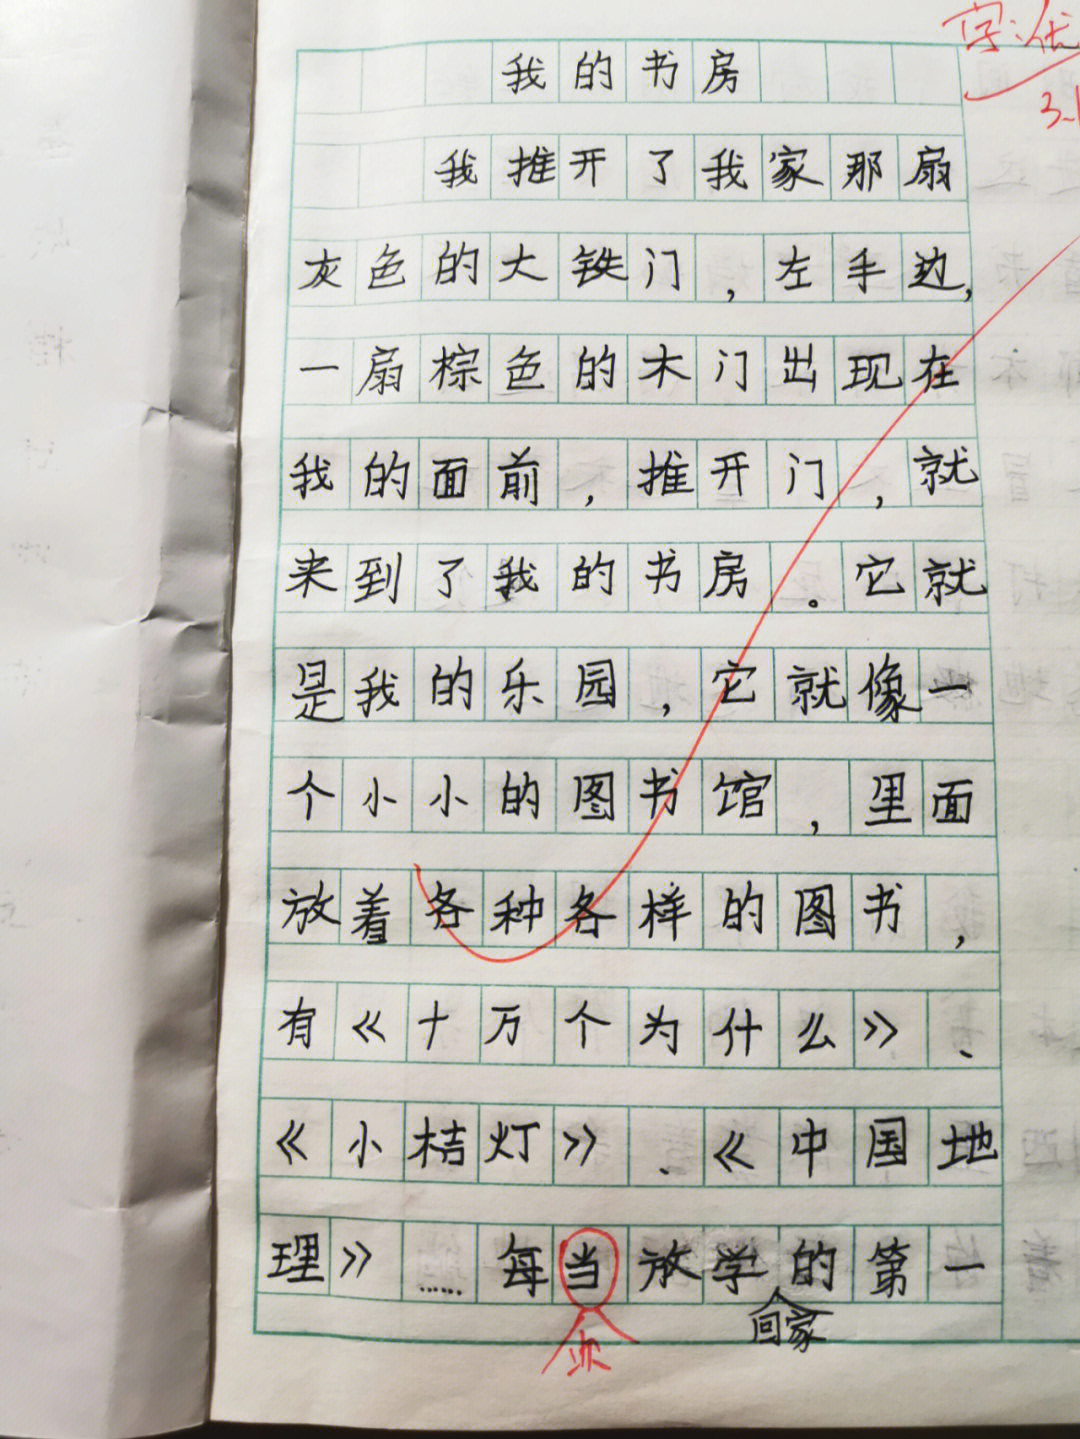 字:优
3.1
我的书房
我推开了我家那扇
灰色的大铁门,左手边,
一扇棕色的木门出现在
我的面前,推开门,就
来到了我的书房。它就
是我的乐园,它就像一
个小小的图书馆,里面
放着各种各样的图书,
有《十万个为什么》、
《小桔灯》、《中国地
理》……每当放学的第一
回家